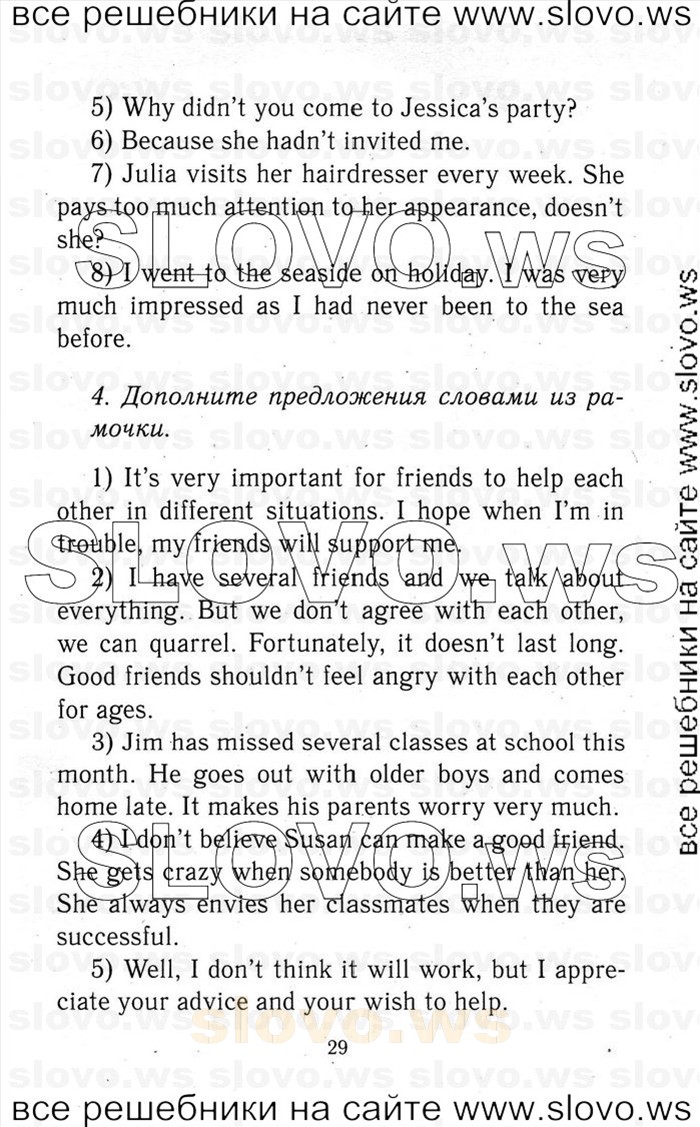 все решебники на сайте www.slovo.ws
5) Why didn't you come to Jessica's party?
6) Because she hadn't invited me.
7) Julia visits her hairdresser every week. She
pays too much attention to her appearance, doesn't
she?
8) I went to the seaside on holiday. I was very
much impressed as I had never been to the sea
before.
4. Дополните предложения словами из ра-
мочки.
1) It's very important for friends to help each
other in different situations. I hope when I'm in
trouble, my friends will support me.
2) I have several friends and we talk about
everything. But we don't agree with each other,
we can quarrel. Fortunately, it doesn't last long.
Good friends shouldn't feel angry with each other
for ages.
3) Jim has missed several classes at school this
month. He goes out with older boys and comes
home late. It makes his parents worry very much.
4) I don't believe Susan can make a good friend.
She gets crazy when somebody is better than her.
She always envies her classmates when they are
successful.
5) Well, I don't think it will work, but I appre-
ciate your advice and your wish to help.
29
все решебники на сайте www.slovo.ws
все решебники на сайте www.slovo.ws
SLOVO.ws
SLOVO.ws
SLOVO.ws
slovo.ws